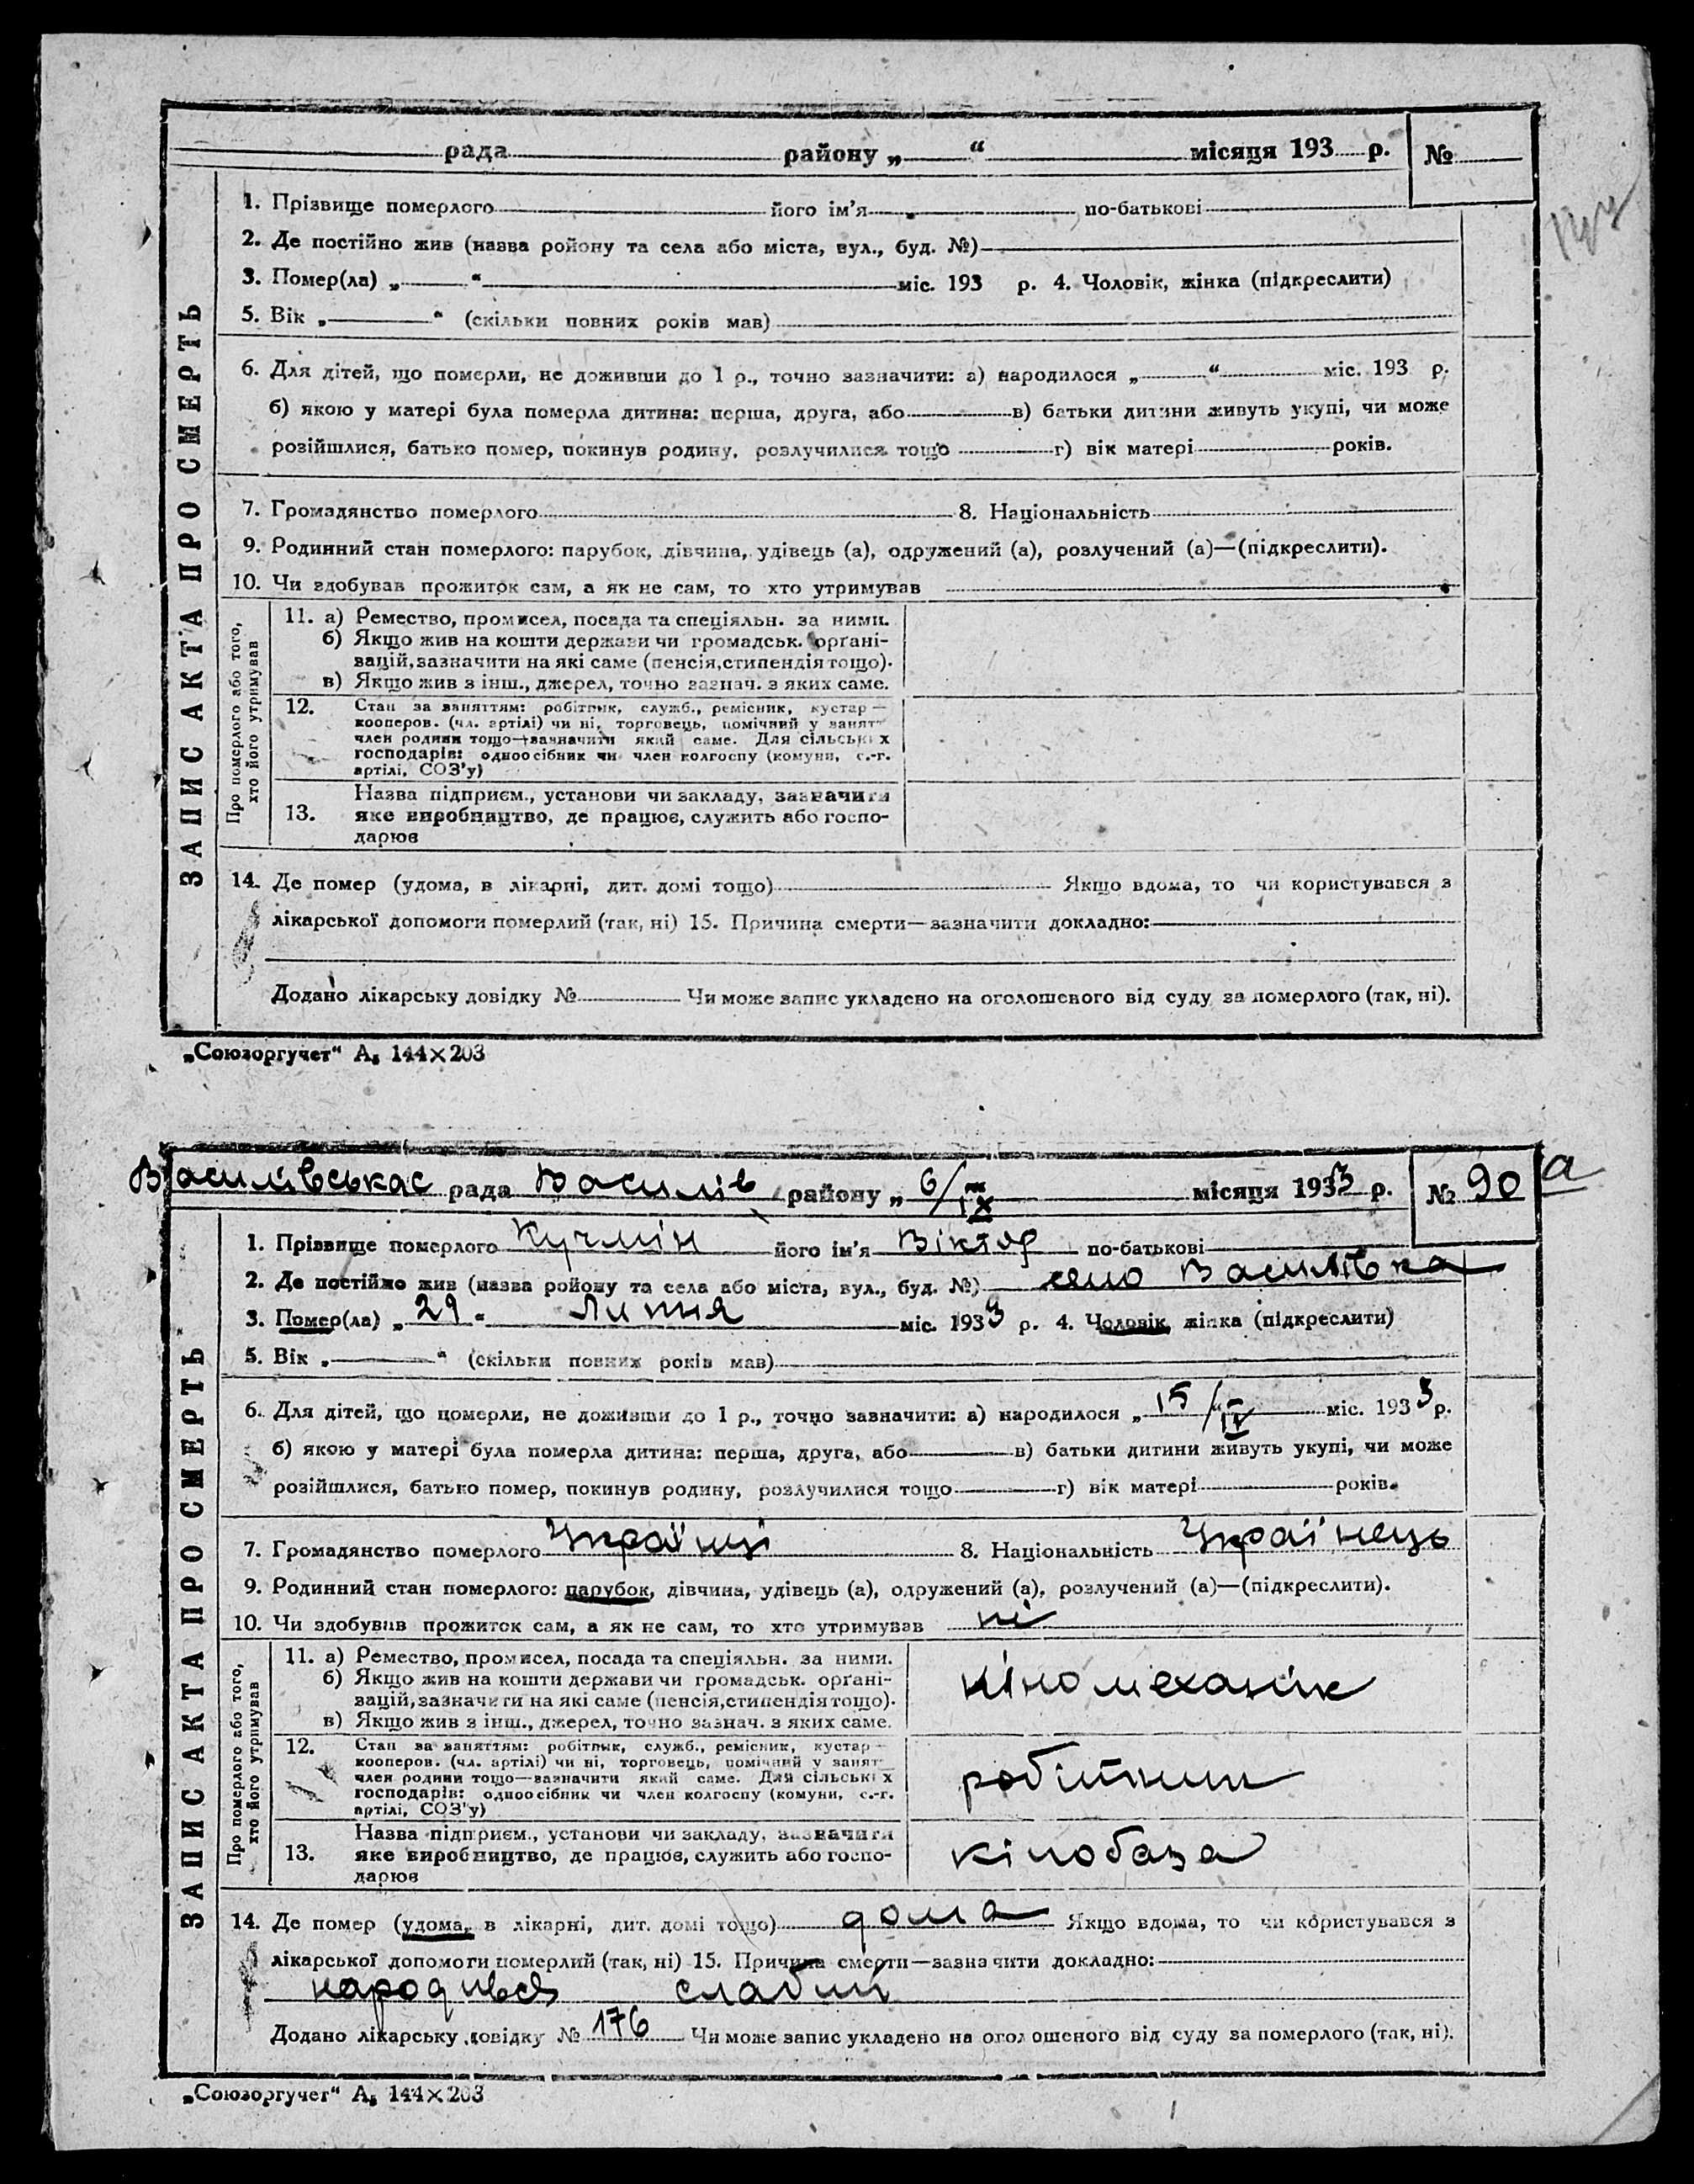 рада району „ “ місяця 193 р. №
1. Прізвище померлого його ім’я по-батькові
2. Де постійно жив (назва ройону та села або міста, вул., буд. №)
3. Помер(ла) „ “ міс. 193 р. 4. Чоловік, жінка (підкреслити)
5. Вік „ “ (скільки повних років мав)
6. Для дітей, що померли, не доживши до 1 р., точно зазначити: а) народилося „ “ міс. 193 р.
б) якою у матері була померла дитина: перша, друга, або в) батьки дитини живуть укупі, чи може
розійшлися, батько помер, покинув родину, розлучилися тощо г) вік матері років.
7. Громадянство померлого 8. Національність
9. Родинний стан померлого: парубок, дівчина, удівець (а), одружений (а), розлучений (а)—(підкреслити).
10. Чи здобував прожиток сам, а як не сам, то хто утримував
ЗАПИС АКТА ПРО СМЕРТЬ
Про померлого або того,
хто його утримував
11. а) Ремество, промисел, посада та спеціяльн. за ними.
б) Якщо жив на кошти держави чи громадськ. орґані-
зацій, зазначити на які саме (пенсія, стипендія тощо).
в) Якщо жив з інш., джерел, точно зазнач. з яких саме.
12. Стан за заняттям: робітник, служб., ремісник, кустар—
кооперов. (чл. артілі) чи ні, торговець, помічний у занят
член родини тощо—зазначити який саме. Для сільських
господарів: одноосібник чи член колгоспу (комуни, с.-г.
артілі, СОЗ’у)
Назва підприєм., установи чи закладу, зазначити
13. яке виробництво, де працює, служить або госпо-
дарює
14. Де помер (удома, в лікарні, дит. домі тощо) Якщо вдома, то чи користувався з
лікарської допомоги померлий (так, ні) 15. Причина смерти—зазначити докладно:
Додано лікарську довідку № Чи може запис укладено на оголошеного від суду за померлого (так, ні).
„Союзоргучет“ А₅ 144×203
Василівськас рада Василів району „ 6/IX місяця 1933 р. № 90 а
1. Прізвище померлого Кучмін його ім’я Віктор по-батькові
2. Де постійно жив (назва ройону та села або міста, вул., буд. №) село Василівка
3. Помер(ла) „ 29 “ Липня міс. 1933 р. 4. Чоловік, жінка (підкреслити)
5. Вік „ “ (скільки повних років мав)
6. Для дітей, що померли, не доживши до 1 р., точно зазначити: а) народилося „ 15/IV “ міс. 1933 р.
б) якою у матері була померла дитина: перша, друга, або в) батьки дитини живуть укупі, чи може
розійшлися, батько помер, покинув родину, розлучилися тощо г) вік матері років.
7. Громадянство померлого Україні 8. Національність Українець
9. Родинний стан померлого: парубок, дівчина, удівець (а), одружений (а), розлучений (а)—(підкреслити).
10. Чи здобував прожиток сам, а як не сам, то хто утримував ні
ЗАПИС АКТА ПРО СМЕРТЬ
Про померлого або того,
хто його утримував
11. а) Ремество, промисел, посада та спеціяльн. за ними.
б) Якщо жив на кошти держави чи громадськ. орґані-
зацій, зазначити на які саме (пенсія, стипендія тощо).
в) Якщо жив з інш., джерел, точно зазнач. з яких саме.
кіномеханік
12. Стан за заняттям: робітник, служб., ремісник, кустар—
кооперов. (чл. артілі) чи ні, торговець, помічний у занят
член родини тощо—зазначити який саме. Для сільських
господарів: одноосібник чи член колгоспу (комуни, с.-г.
артілі, СОЗ’у)
робітник
Назва підприєм., установи чи закладу, зазначити
13. яке виробництво, де працює, служить або госпо-
дарює
кінобаза
14. Де помер (удома, в лікарні, дит. домі тощо) дома Якщо вдома, то чи користувався з
лікарської допомоги померлий (так, ні) 15. Причина смерти—зазначити докладно:
народився слабий
Додано лікарську довідку № 176 Чи може запис укладено на оголошеного від суду за померлого (так, ні).
„Союзоргучет“ А₅ 144×203